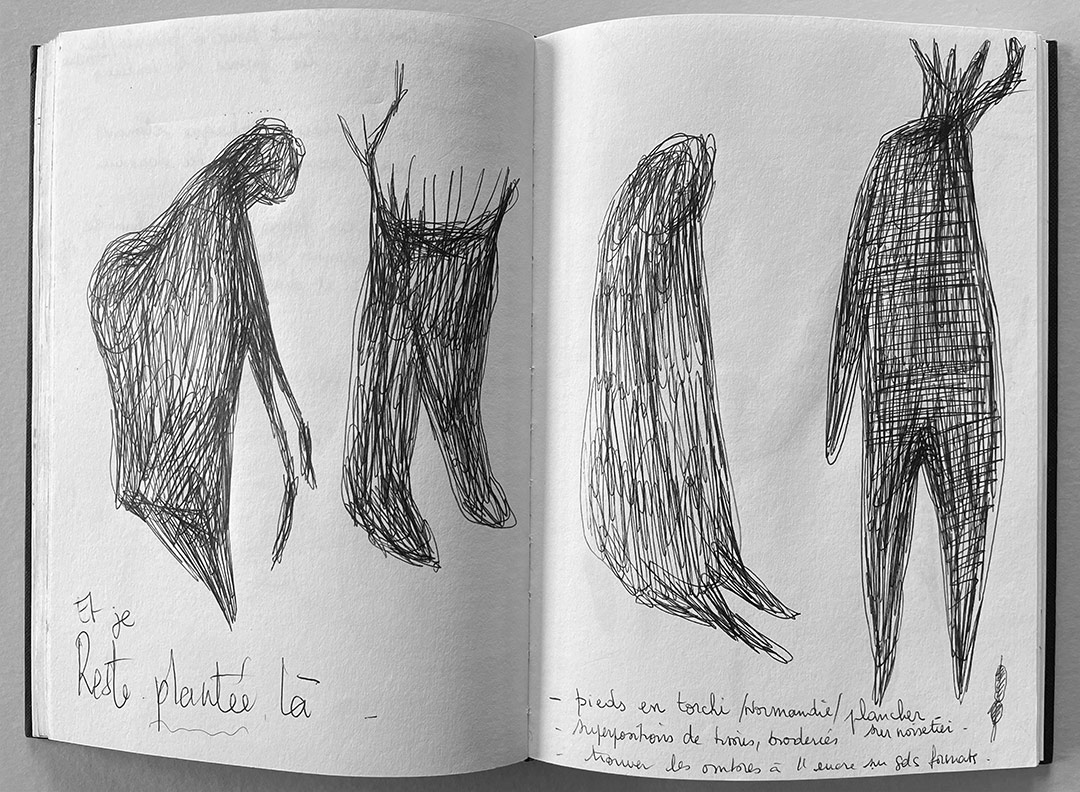 Et je
Reste plantée là -
- pieds en torchi /Normandie/ plancher -
- superpositions de broderies sur noisetier -
- trouver les ombres à l'encre sur gds formats.